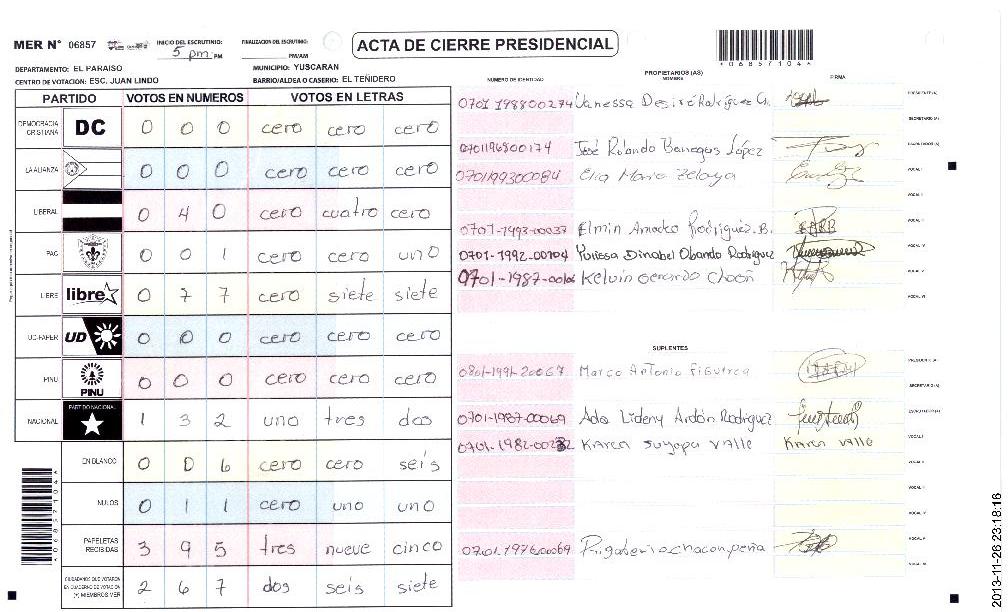 MER N° 06857 INICIO DEL ESCRUTINIO: 5 pm. PM FINALIZACION DEL ESCRUTINIO: PM/AM
ACTA DE CIERRE PRESIDENCIAL
*06857104*
DEPARTAMENTO: EL PARAISO MUNICIPIO: YUSCARAN
CENTRO DE VOTACION: ESC. JUAN LINDO BARRIO/ALDEA O CASERIO: EL TEÑIDERO
PARTIDO VOTOS EN NUMEROS VOTOS EN LETRAS
DEMOCRACIA CRISTIANA DC 0 0 0 cero cero cero
LA ALIANZA 0 0 0 cero cero cero
LIBERAL 0 4 0 cero cuatro cero
PAC 0 0 1 cero cero uno
LIBRE libre 0 7 7 cero siete siete
UD-FAPER UD 0 0 0 cero cero cero
PINU PINU 0 0 0 cero cero cero
NACIONAL PARTIDO NACIONAL 1 3 2 uno tres dos
EN BLANCO 0 0 6 cero cero seis
NULOS 0 1 1 cero uno uno
PAPELETAS RECIBIDAS 3 9 5 tres nueve cinco
CIUDADANOS QUE VOTARON EN CUADERNO DE VOTACION (+) MIEMBROS MER 2 6 7 dos seis siete
NUMERO DE IDENTIDAD PROPIETARIOS (AS) NOMBRE FIRMA
0701 198800274 Vanessa Desiré Rodríguez G. PRESIDENTE (A)
SECRETARIO (A)
0701196800174 José Rolando Banegas López ESCRUTADOR (A)
0701199300084 Elia Maria Zelaya VOCAL I
VOCAL II
0701-1993-00037 Elmin Amadeo Rodriguez.B. VOCAL III
0701-1992-00104 Yorissa Dinabel Obando Rodriguez VOCAL IV
0701-1987-00106 Kelvin Gerardo VOCAL V
VOCAL VI
SUPLENTES
0801-1991-20067 Marco Antonio Figueroa PRESIDENTE (A)
SECRETARIO (A)
0701-1987-00069 Ada Lideny Ardón Rodriguez ESCRUTADOR (A)
0701-1982-00232 Karen Suyapa Valle Karen Valle VOCAL I
VOCAL II
VOCAL III
VOCAL IV
0701-1976-00069 VOCAL V
VOCAL VI
2013-11-26 23:18:16